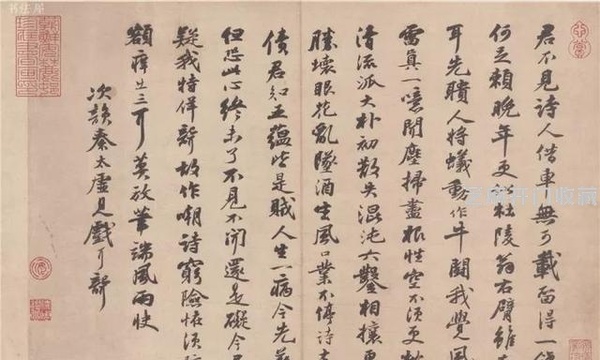 君不見詩人借車無可載留得一
何足賴晚年更似杜陵翁右臂雖
耳先聵人將蟻動作牛鬬我覺風
雷真一噫聞塵掃盡根性空不須更
清流派大朴初散失混沌六鑿相攘更
勝壞眼花亂墜酒生風口業不停詩有
債君知五蘊皆是賊人生一病今先差
但恐此心終未了不見不聞還是礙今
疑我特佯聾故作嘲詩窮險怪須
額痒出三耳莫放筆端風雨快
次韻秦太虛見戲耳聾